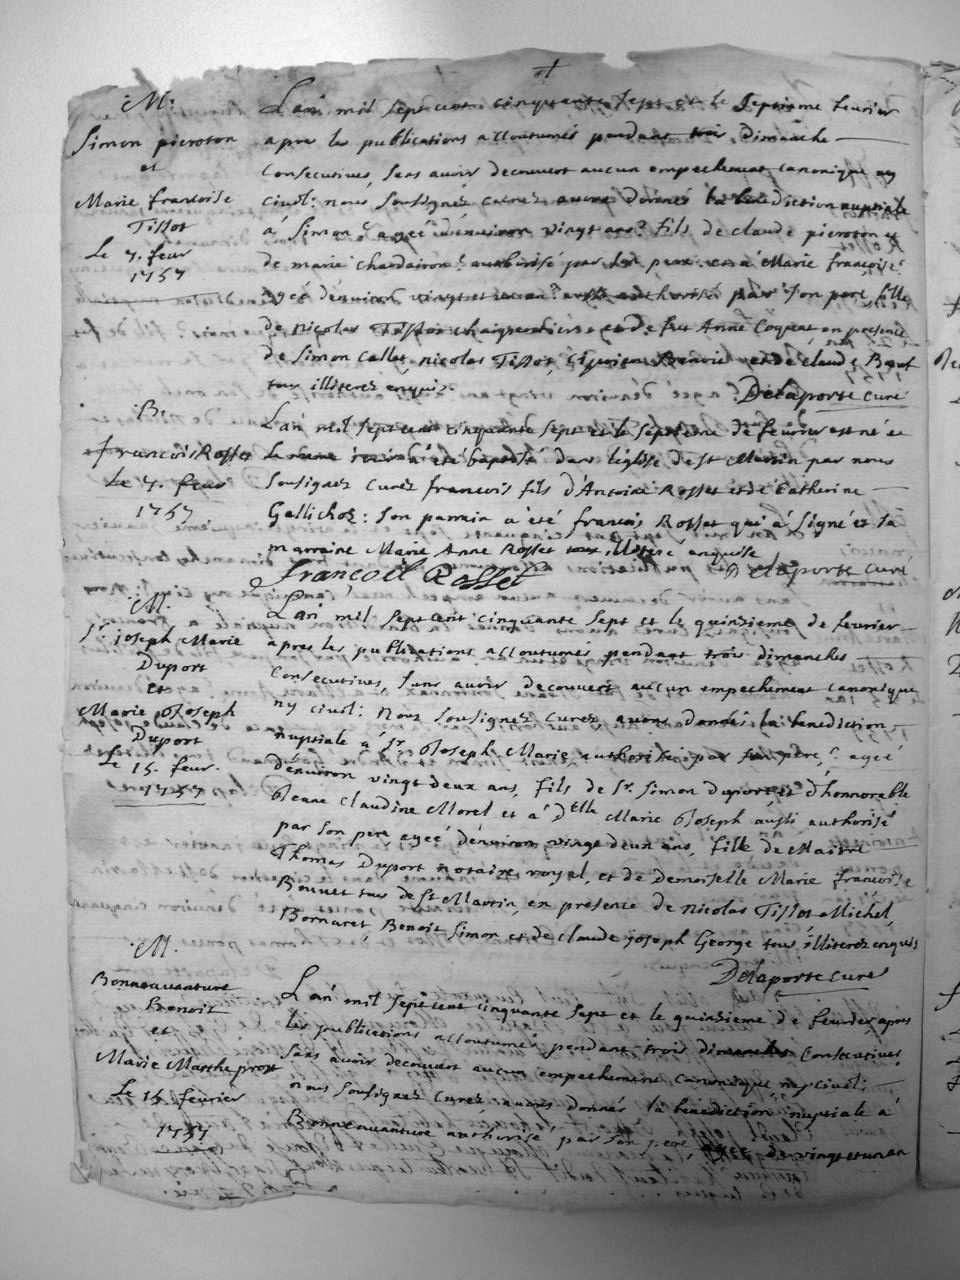 M:
Simon pieroton
et
Marie francoise
Tissot
Le 7. feur
1757
L'an mil sept cent cinquante sept et le septieme feurier
apre les publications accoutumés pendant trois dimanche
Consecutives, sans avoir decouvert aucun empechement canonique ny
Ciuil: nous Soussignez Curez auons donnés la benediction nuptiale
á Simon agée d'enuiron vingt ans fils de claude pieroton et
de marie authorisé par son pere et á Marie françoise
agée d'enuiron vingt et un an authorisé par son pere fille
de Nicolas Tissot et de Anne Coquet en presence
de Simon Callet, nicolas Tissot, Benoit et de claude
tous illiterez enquis. Delaporte curé
B.
francois Rosset
Le 7. feur
1757
L'an mil sept cent cinquante sept et le septieme de feurier est né et
Le meme á été baptisé dans l'église de st Maurin par nous
Soussignez Curez francois fils d'Antoine Rosset et de Catherine
Gallichoz: son parrain á été francois Rosset qui á signé et sa
marraine Marie Anne Rosset illiterée enquise
françois Rosset Delaporte Curé
M.
Sr. joseph Marie
Duport
et
Marie Joseph
Duport
Le 15. feur.
1757
L'an mil sept cent cinquante sept et le quinzieme de feurier
apres les publications accoutumés pendant trois dimanches
Consecutives, sans avoir decouvert aucun empechement canonique
ny ciuil: Nous Soussignez Curez auons donnés la benediction
nuptiale á Sr. Joseph Marie authorisé par son pere, agée
d'enuiron vingt deux ans, fils de Sr. Simon Duport et d'honnorable
Jeane Claudine Morel et á Delle Marie Joseph aussi authorisé
par son pere ageé d'enuiron vingt deux ans, fille de Maitre
Thomas Duport notaire royal, et de Demoiselle Marie francoise
Bouvet tous de St Maurin, en presence de Nicolas Tissot Michel,
Bornaret, Benoit Simon et de claude joseph George tous illiterez enquis
Delaporte curé
M.
Bonneauanture
Benoit
et
Marie Marthe prost
Le 15 feurier
1757
L'an mil sept cent cinquante sept et le quinzieme de feurier apres
les publications accoutumés pendant trois dimanches Consecutives
Sans avoir decouvert aucun empechement canonique ny ciuil:
nous Soussignez Curez auons donnés la benediction nuptiale á
Bonneauanture authorisé par son pere, de vingt et un an